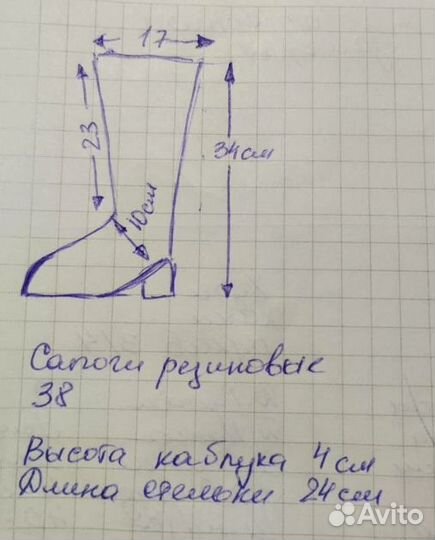 17
23
34см
10см
Сапоги резиновые
38
Высота каблука 4см
Длина стельки 24см
Avito